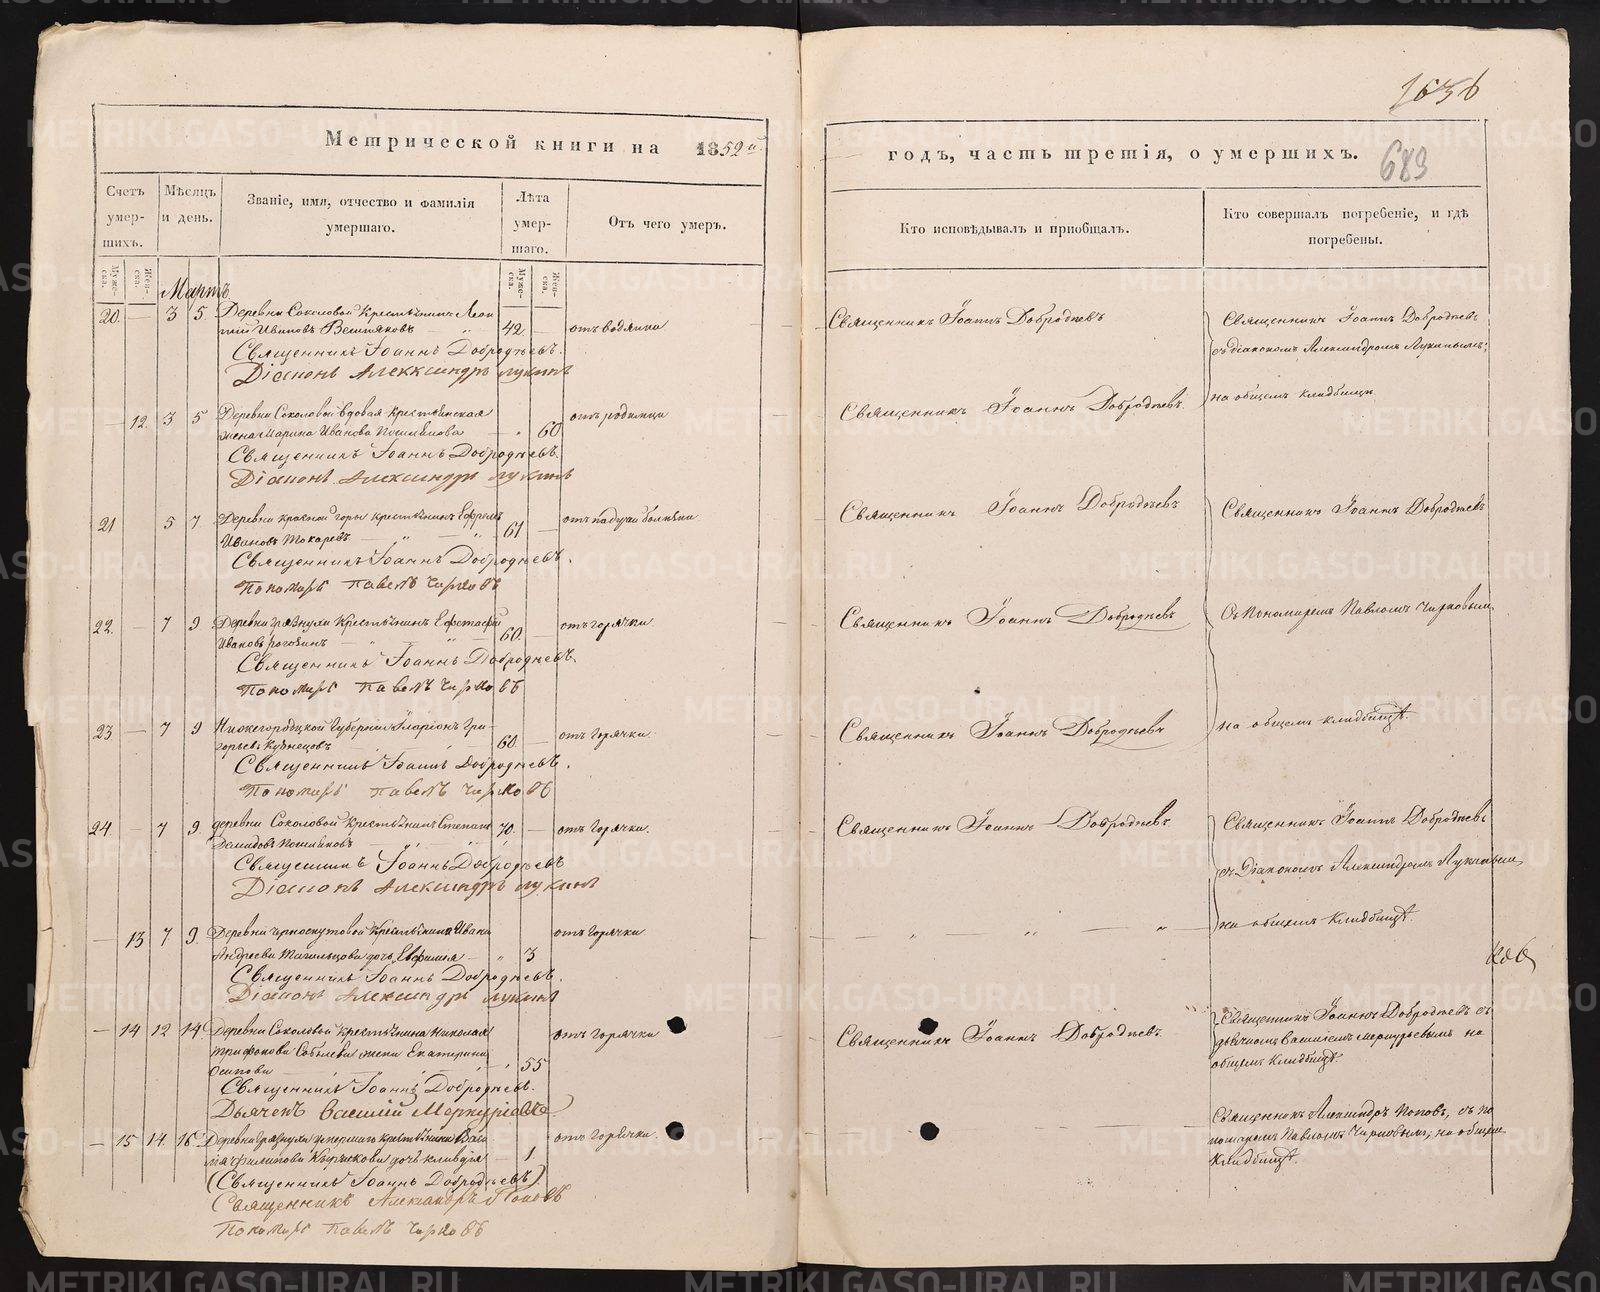 1636
Метрической книги на 1852й
годъ, часть третія, о умершихъ.
683
Счетъ умер-шихъ.
Мѣсяцъ и день.
Званіе, имя, отчество и фамилія умершаго.
Лѣта умер-шаго.
Отъ чего умеръ.
Кто исповѣдывалъ и пріобщалъ.
Кто совершалъ погребеніе, и гдѣ погребены.
Муже-ска.
Жен-ска.
Муже-ска.
Жен-ска.
Мартъ
20. — 3 5 Деревни Соколовой крестьянинъ
Ивановъ 42 — отъ водянки
Священникъ Іоаннъ Добродѣевъ.
Діаконъ Александръ Лукинъ
Священникъ Іоаннъ Добродѣевъ
Священникъ Іоаннъ Добродѣевъ
съ діакономъ Александромъ Лукинымъ;
на общемъ кладбищѣ
— 12 3 5 Деревни Соколовой вдовая крестьянская
жена Марина Иванова 60
Священникъ Іоаннъ Добродѣевъ.
Діаконъ Александръ Лукинъ
Священникъ Іоаннъ Добродѣевъ
21 5 7 Деревни Красной горы крестьянинъ Ефремъ
Ивановъ Токаревъ 61 — отъ падучей болѣзни
Священникъ Іоаннъ Добродѣевъ.
Пономарь Павелъ Чирковъ
Священникъ Іоаннъ Добродѣевъ
Священникъ Іоаннъ Добродѣевъ
22. — 7 9 Деревни Грязнухи крестьянинъ
Ивановъ 60. — отъ горячки
Священникъ Іоаннъ Добродѣевъ.
Пономарь Павелъ Чирковъ
Священникъ Іоаннъ Добродѣевъ
Съ Пономаремъ Павломъ Чирковымъ
23 — 7 9 Нижегородской Губерніи Иларіонъ Гри-
горьевъ Кузнецовъ 60 — отъ горячки.
Священникъ Іоаннъ Добродѣевъ.
Пономарь Павелъ Чирковъ
Священникъ Іоаннъ Добродѣевъ
на общемъ кладбищѣ.
24. — 7 9. деревни Соколовой крестьянинъ Степанъ 70. — отъ горячки.
Демидовъ
Священникъ Іоаннъ Добродѣевъ
Діаконъ Александръ Лукинъ
Священникъ Іоаннъ Добродѣевъ
Священникъ Іоаннъ Добродѣевъ
съ Діакономъ Александромъ Лукинымъ
на общемъ Кладбищѣ.
— 13 7 9. Деревни крестьянина Ивана отъ горячки
Андреева дочь Евфимия 3
Священникъ Іоаннъ Добродѣевъ.
Діаконъ Александръ Лукинъ
— 14 12 14 Деревни Соколовой крестьянина Николая отъ горячки
Трифонова Соболева жена Екатерина
Осипова 55
Священникъ Іоаннъ Добродѣевъ.
Дьячекъ Василій Меркурьевъ
Священникъ Іоаннъ Добродѣевъ.
Священникъ Іоаннъ Добродѣевъ съ
дьячкомъ Василіемъ Меркурьевымъ на
общемъ кладбищѣ.
— 15 14 16 Деревни Грязнухи крестьянина отъ горячки.
Филипова дочь Клавдія 1
(Священникъ Іоаннъ Добродѣевъ)
Священникъ Александръ Поповъ
Пономарь Павелъ Чирковъ
Священникъ Александръ Поповъ, съ по
номаремъ Павломъ Чирковымъ; на общемъ
кладбищѣ.
METRIKI.GASO-URAL.RU